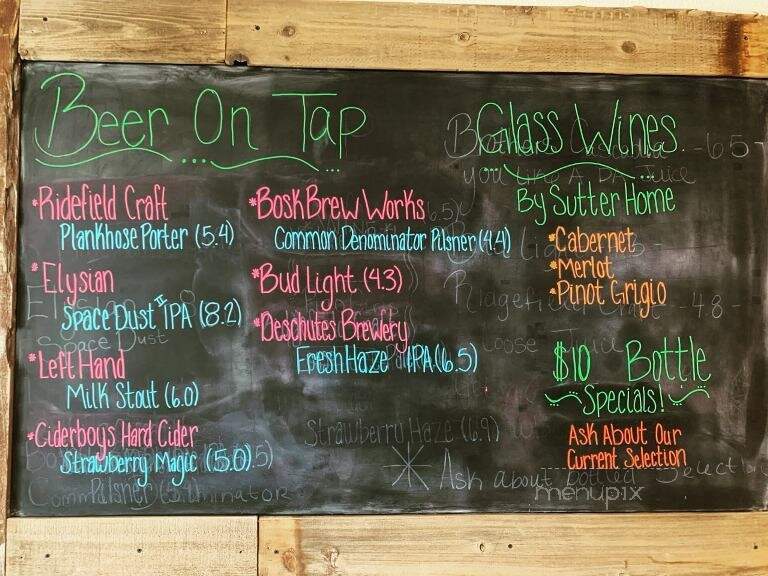 Beer On Tap
*Ridefield Craft
Plankhose Porter (5.4)
*Elysian
Space Dust IPA (8.2)
*Left Hand
Milk Stout (6.0)
*Ciderboys Hard Cider
Strawberry Magic (5.0)
*Bosk Brew Works
Common Denominator Pilsner (4.4)
*Bud Light (4.3)
*Deschutes Brewery
Fresh Haze IPA (6.5)
Strawberry Haze (6.9)
Glass Wines
By Sutter Home
*Cabernet
*Merlot
*Pinot Grigio
$10 Bottle
Specials!
Ask About Our
Current Selection
Ask about bottled Selection
menupix